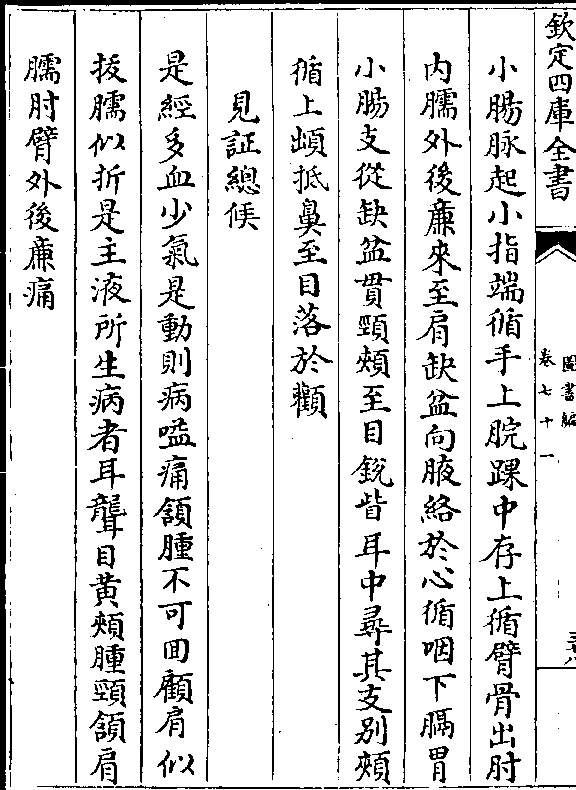 欽定四庫全書
圖書編
卷七十一
小腸脉起小指端循手上腕踝中存上循臂骨出肘
内臑外後廉來至肩缺盆向腋絡於心循咽下膈胃
小腸支從缺盆貫頸頰至目銳眥耳中尋其支别頰
循上䪼抵鼻至目落於顴
見証總候
是經多血少氣是動則病嗌痛頷腫不可囬顧肩似
拔臑似折是主液所生病者耳聾目黄頰腫頸頷肩
臑肘臂外後廉痛